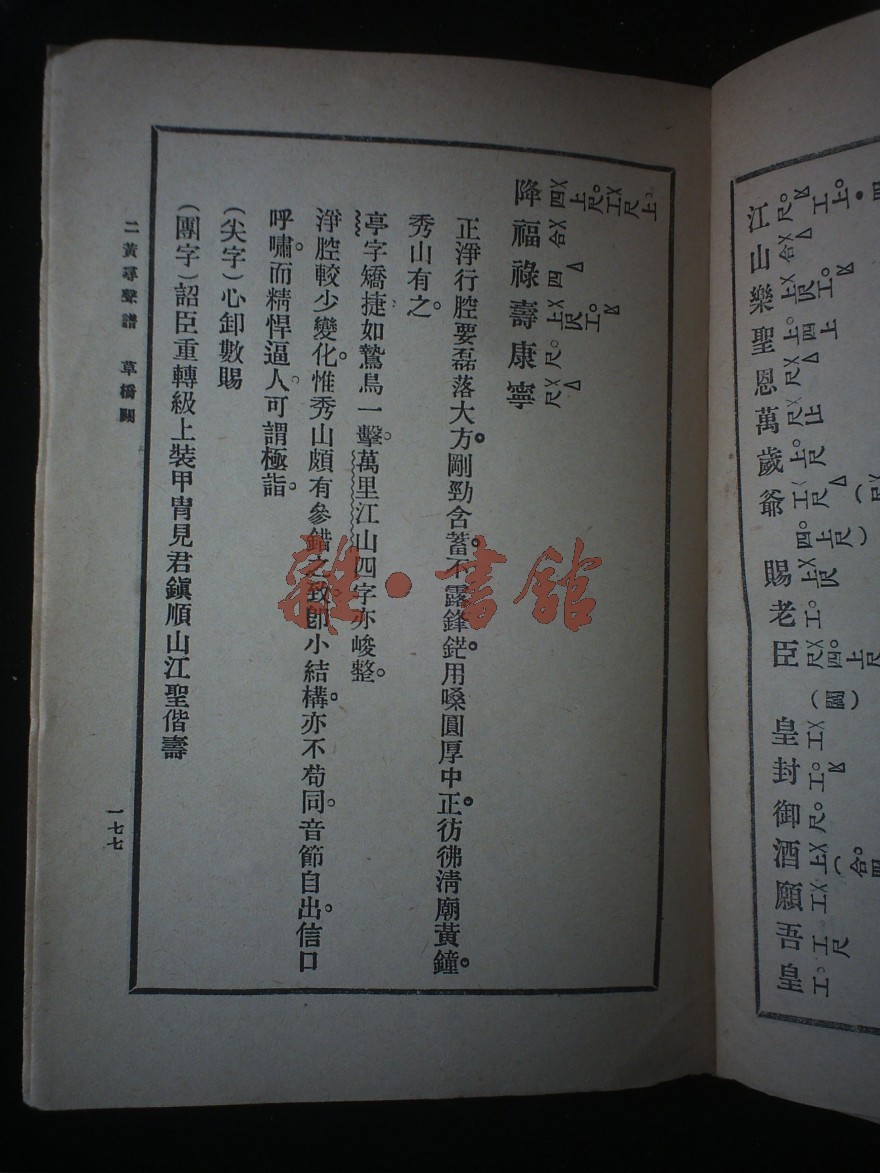 江山樂聖恩萬歲爺賜老臣皇封御酒願吾皇
降福祿壽康寧
正淨行腔要磊落大方。剛勁含蓄。不露鋒鋩。用嗓圓厚中正。彷彿清廟黃鐘。
秀山有之。
亭字矯捷如鷙鳥一擊。萬里江山四字亦峻整。
淨腔較少變化。惟秀山頗有參錯之致。卽小結構。亦不苟同。音節自出。信口
呼嘯。而精悍逼人。可謂極詣。
(尖字)心卸數賜
(團字)詔臣重轉級上裝甲冑見君鎭順山江聖偕壽
二黃尋聲譜 草橋關
一七七
雜·書館